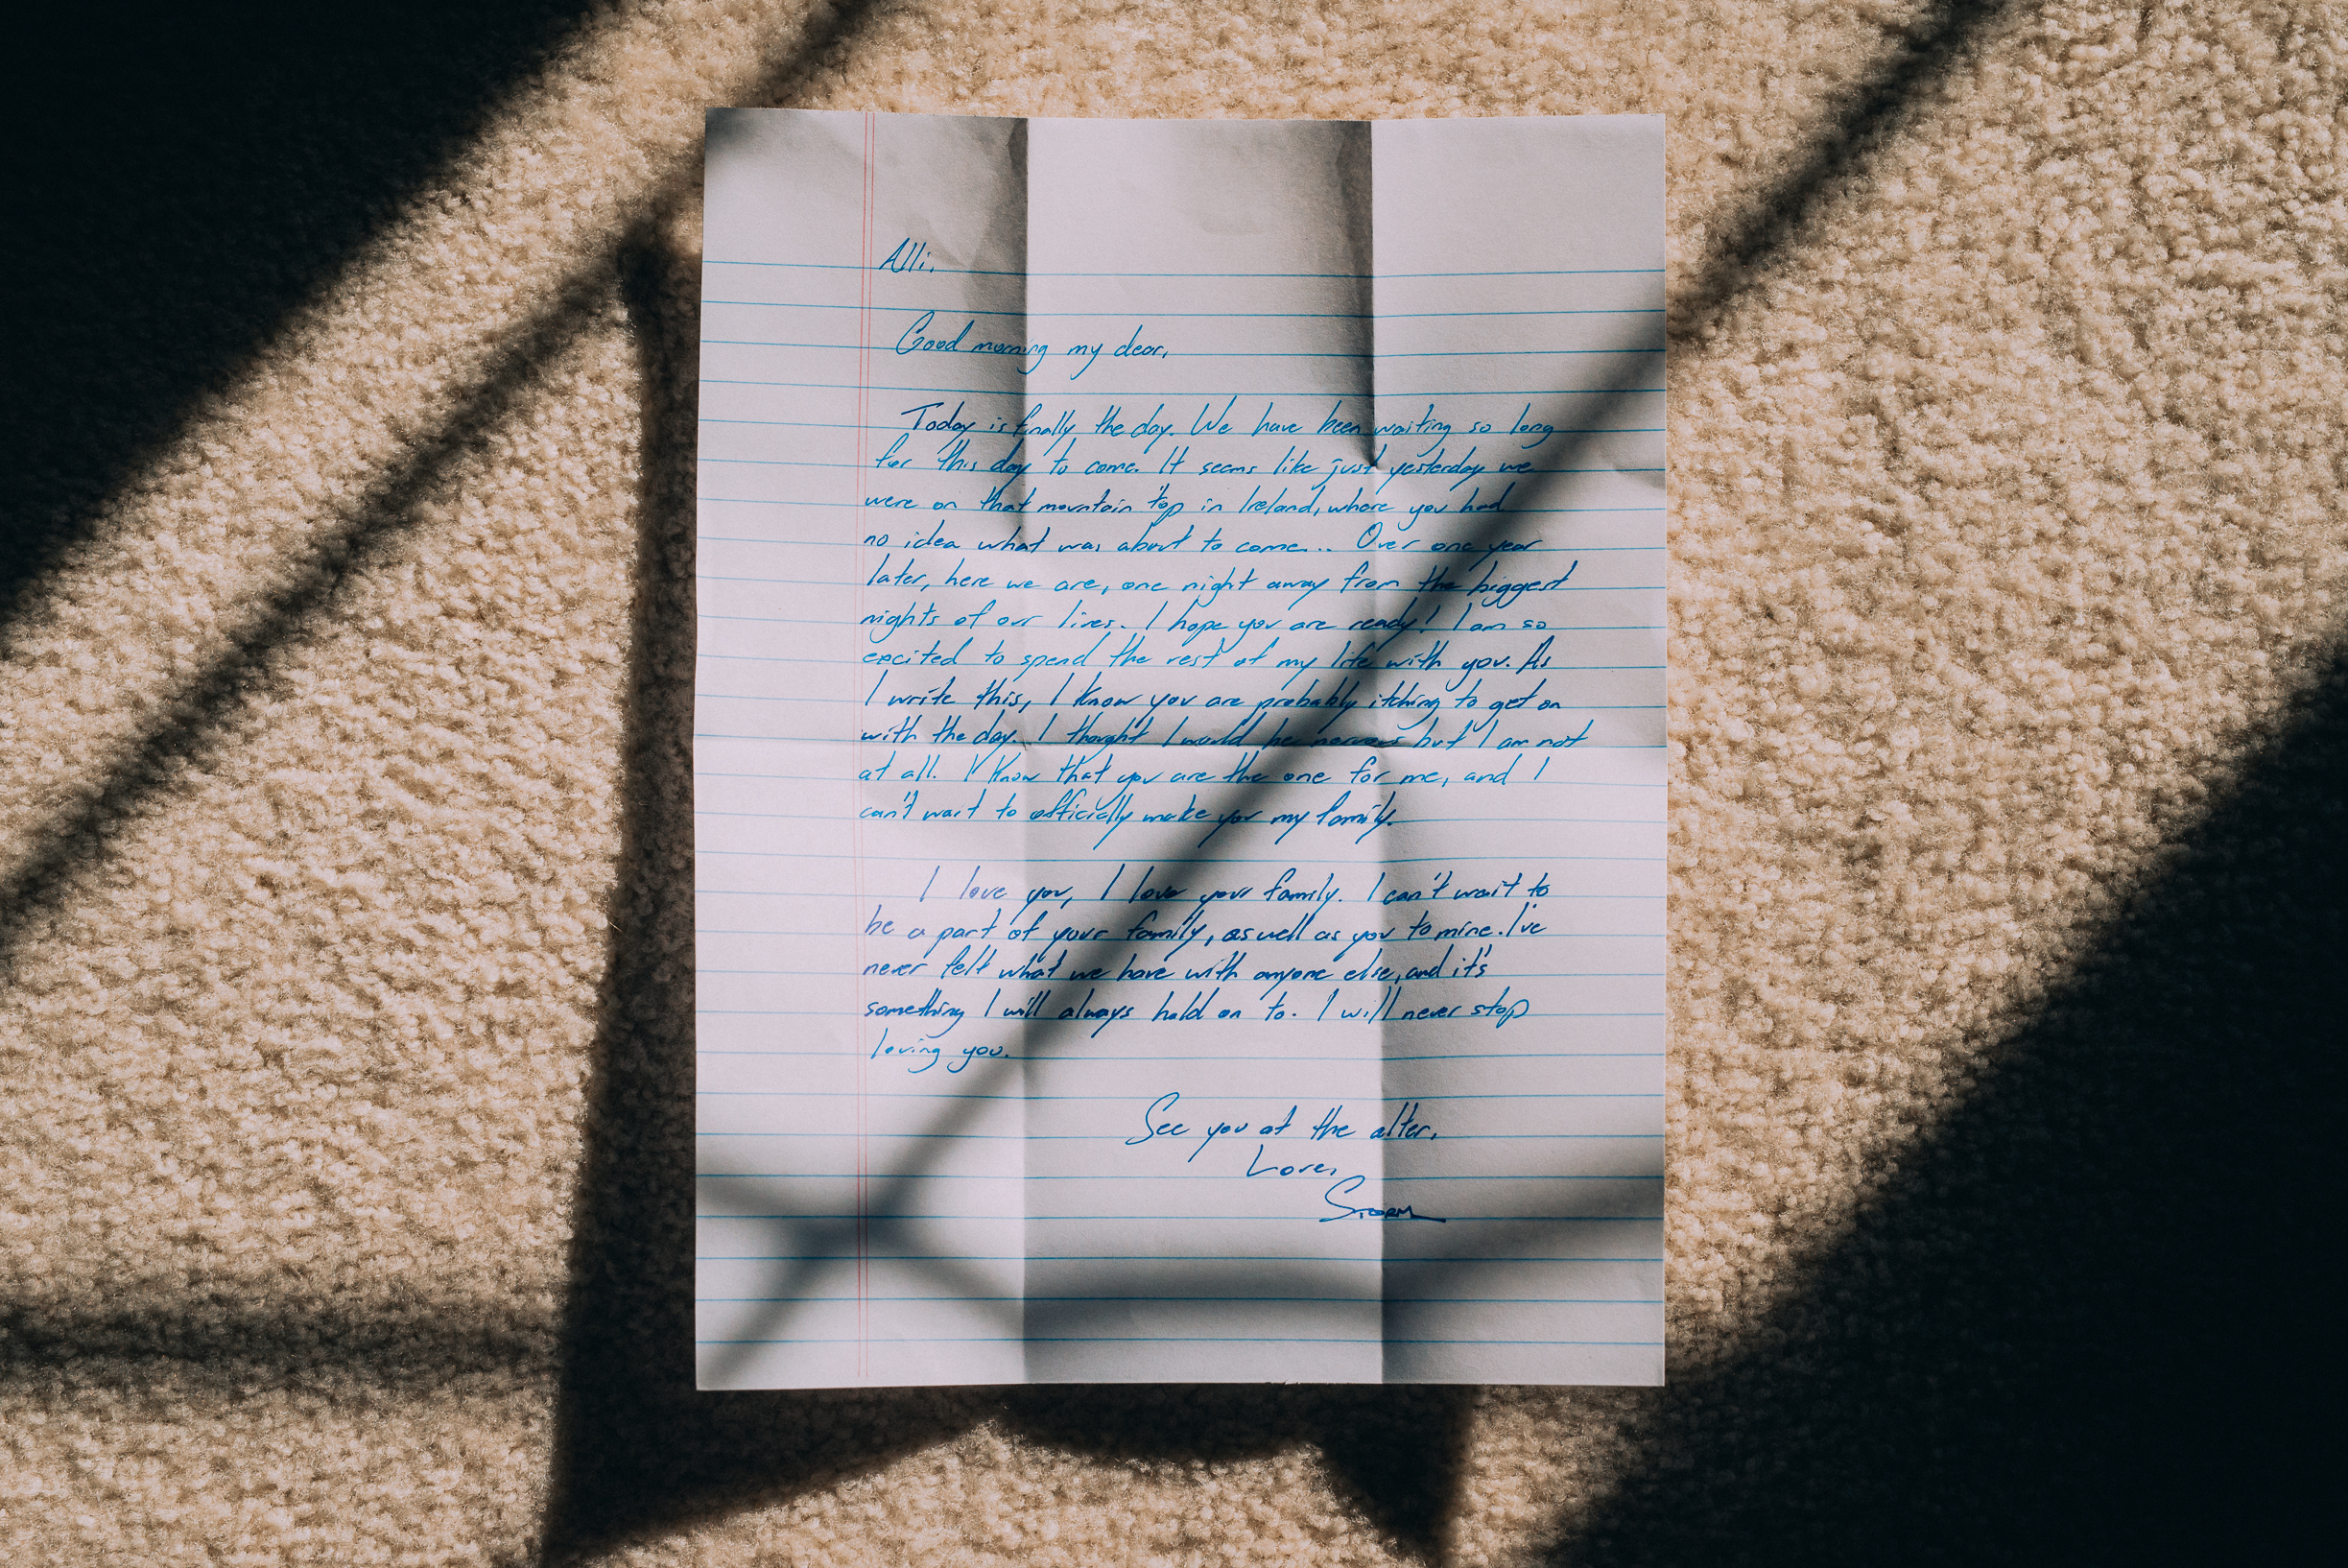 Alli,
Good morning my dear,
Today is finally the day. We have been waiting so long
for this day to come. It seems like just yesterday we
were on that mountain top in Ireland, where you had
no idea what was about to come... Over one year
later, here we are, one night away from the biggest
nights of our lives. I hope you are ready! I am so
excited to spend the rest of my life with you. As
I write this, I know you are probably itching to get on
with the day. I thought I would be nervous but I am not
at all. I know that you are the one for me, and I
can't wait to officially make you my family.
I love you, I love your family. I can't wait to
be a part of your family, as well as you to mine. I've
never felt what we have with anyone else, and it's
something I will always hold on to. I will never stop
loving you.
See you at the alter,
Love,
Storm